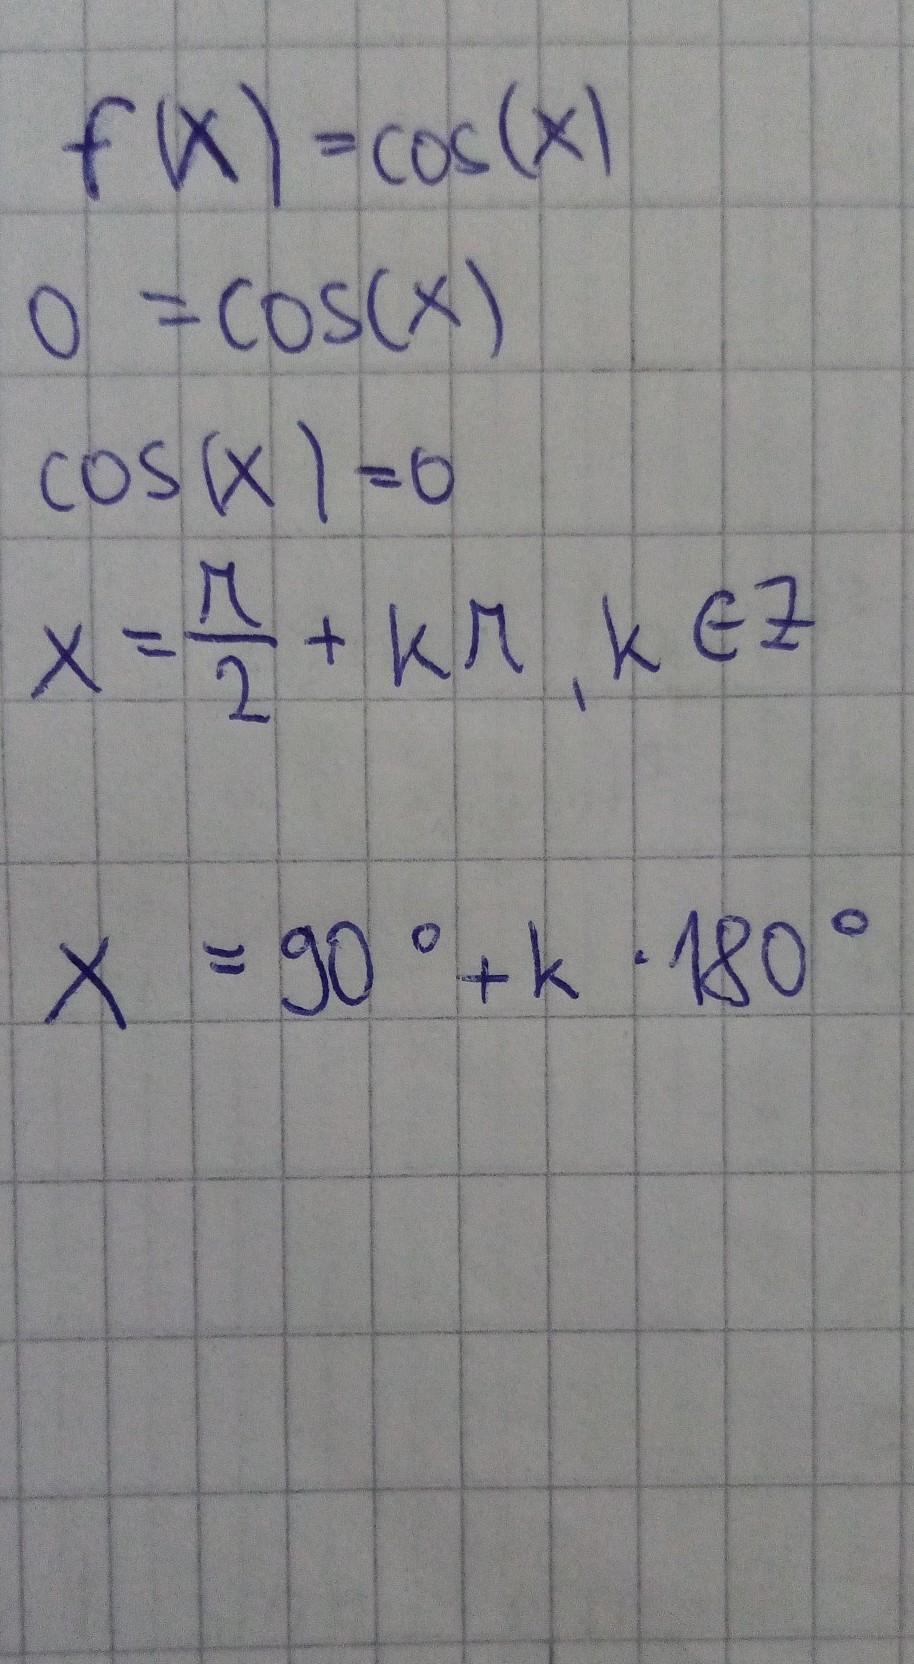 f(x) = cos(x)
0 = cos(x)
cos(x) = 0
x = π/2 + kπ, k ∈ Z
x = 90° + k · 180°